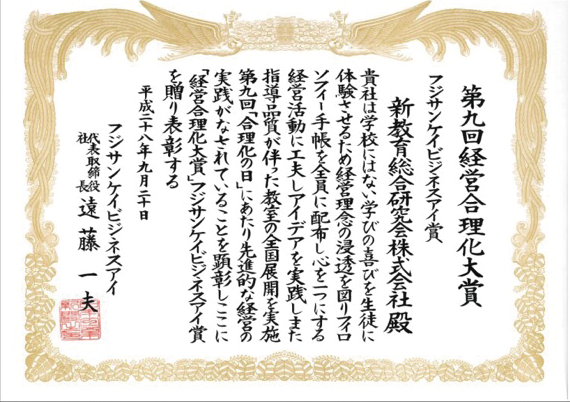 第九回経営合理化大賞
フジサンケイビジネスアイ賞
新教育総合研究会株式会社 殿
貴社は学校にはない学びの喜びを生徒に
体験させるため経営理念の浸透を図りフィロ
ソフィー手帳を全員に配布し心を一つにする
経営活動に工夫しアイデアを実践しまた
指導品質が伴った教室の全国展開を実施
第九回「合理化の日」にあたり先進的な経営の
実践がなされていることを顕彰しここに
「経営合理化大賞」フジサンケイビジネスアイ賞
を贈り表彰する
平成二十八年九月二十日
フジサンケイビジネスアイ
代表取締役社長 遠藤一夫